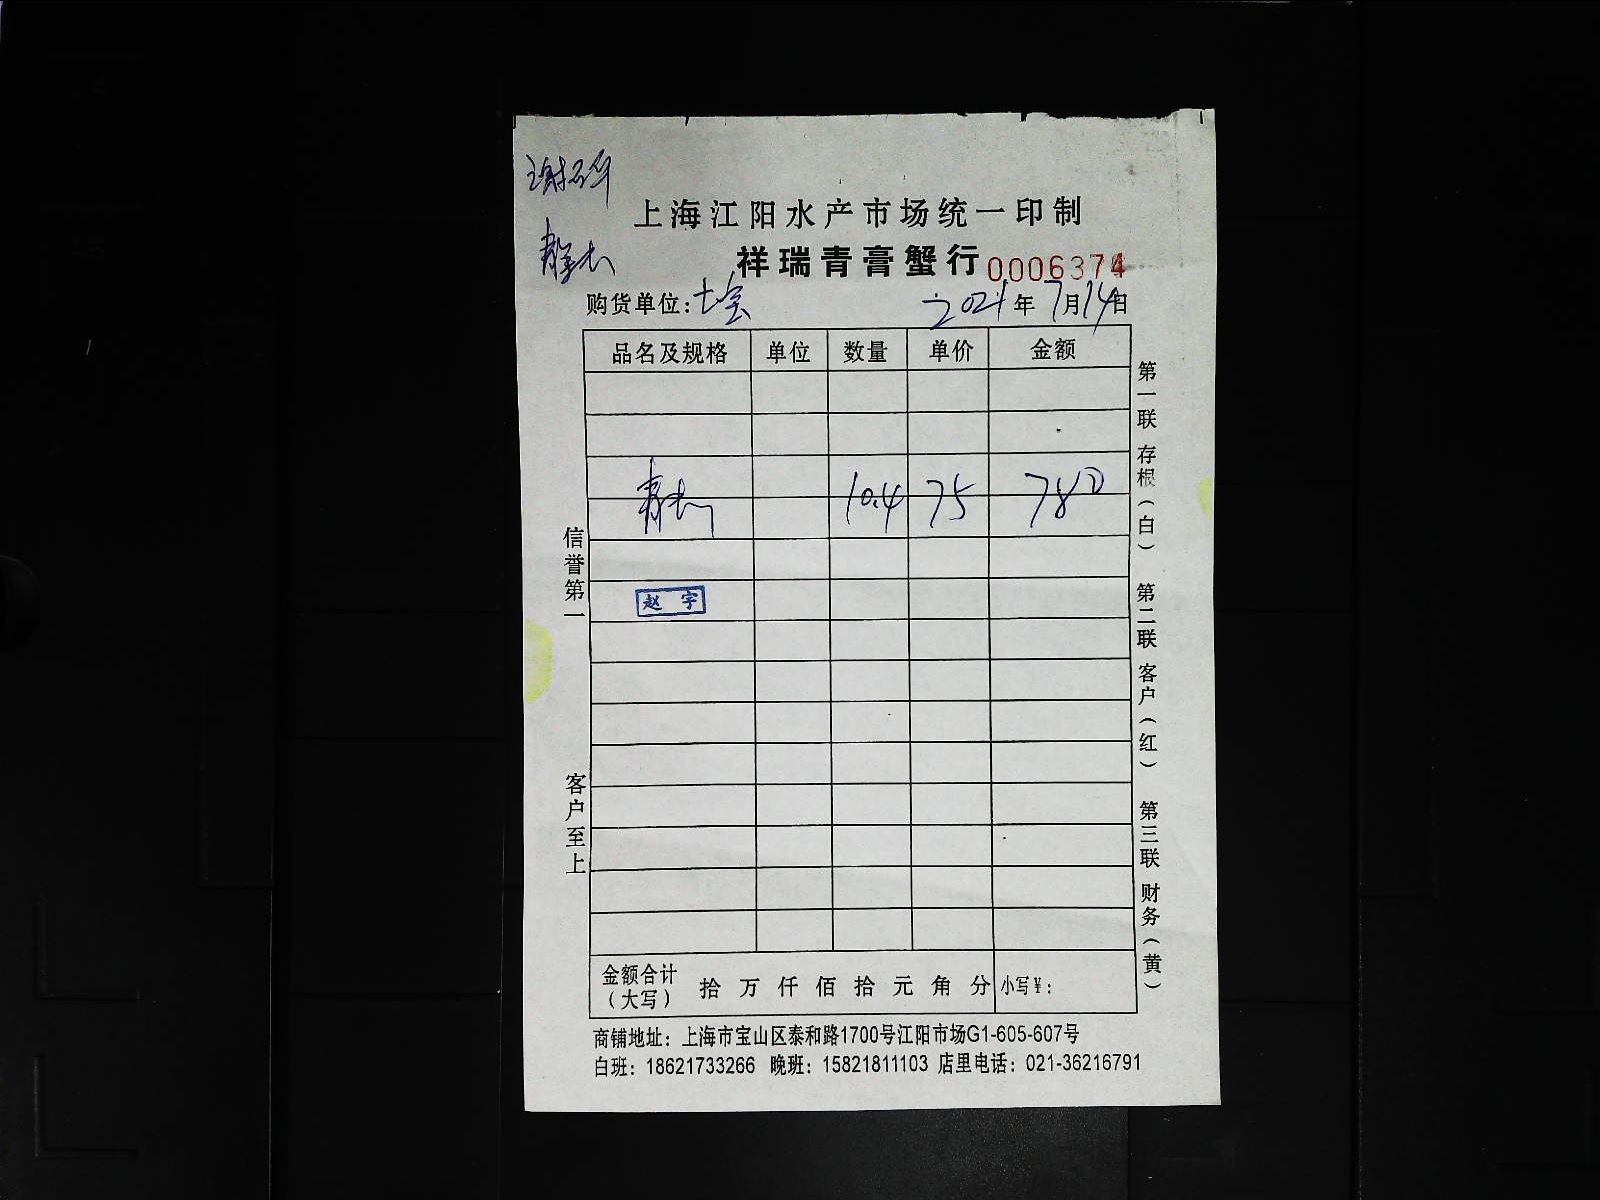 上海江阳水产市场统一印制
祥瑞青膏蟹行 0006374
购货单位: 2021年7月14日
品名及规格 单位 数量 单价 金额
10.4 75 780
赵 宇
金额合计(大写) 拾 万 仟 佰 拾 元 角 分 小写¥:
商铺地址:上海市宝山区泰和路1700号江阳市场G1-605-607号
白班:18621733266 晚班:15821811103 店里电话:021-36216791
信誉第一 客户至上
第一联 存根(白) 第二联 客户(红) 第三联 财务(黄)